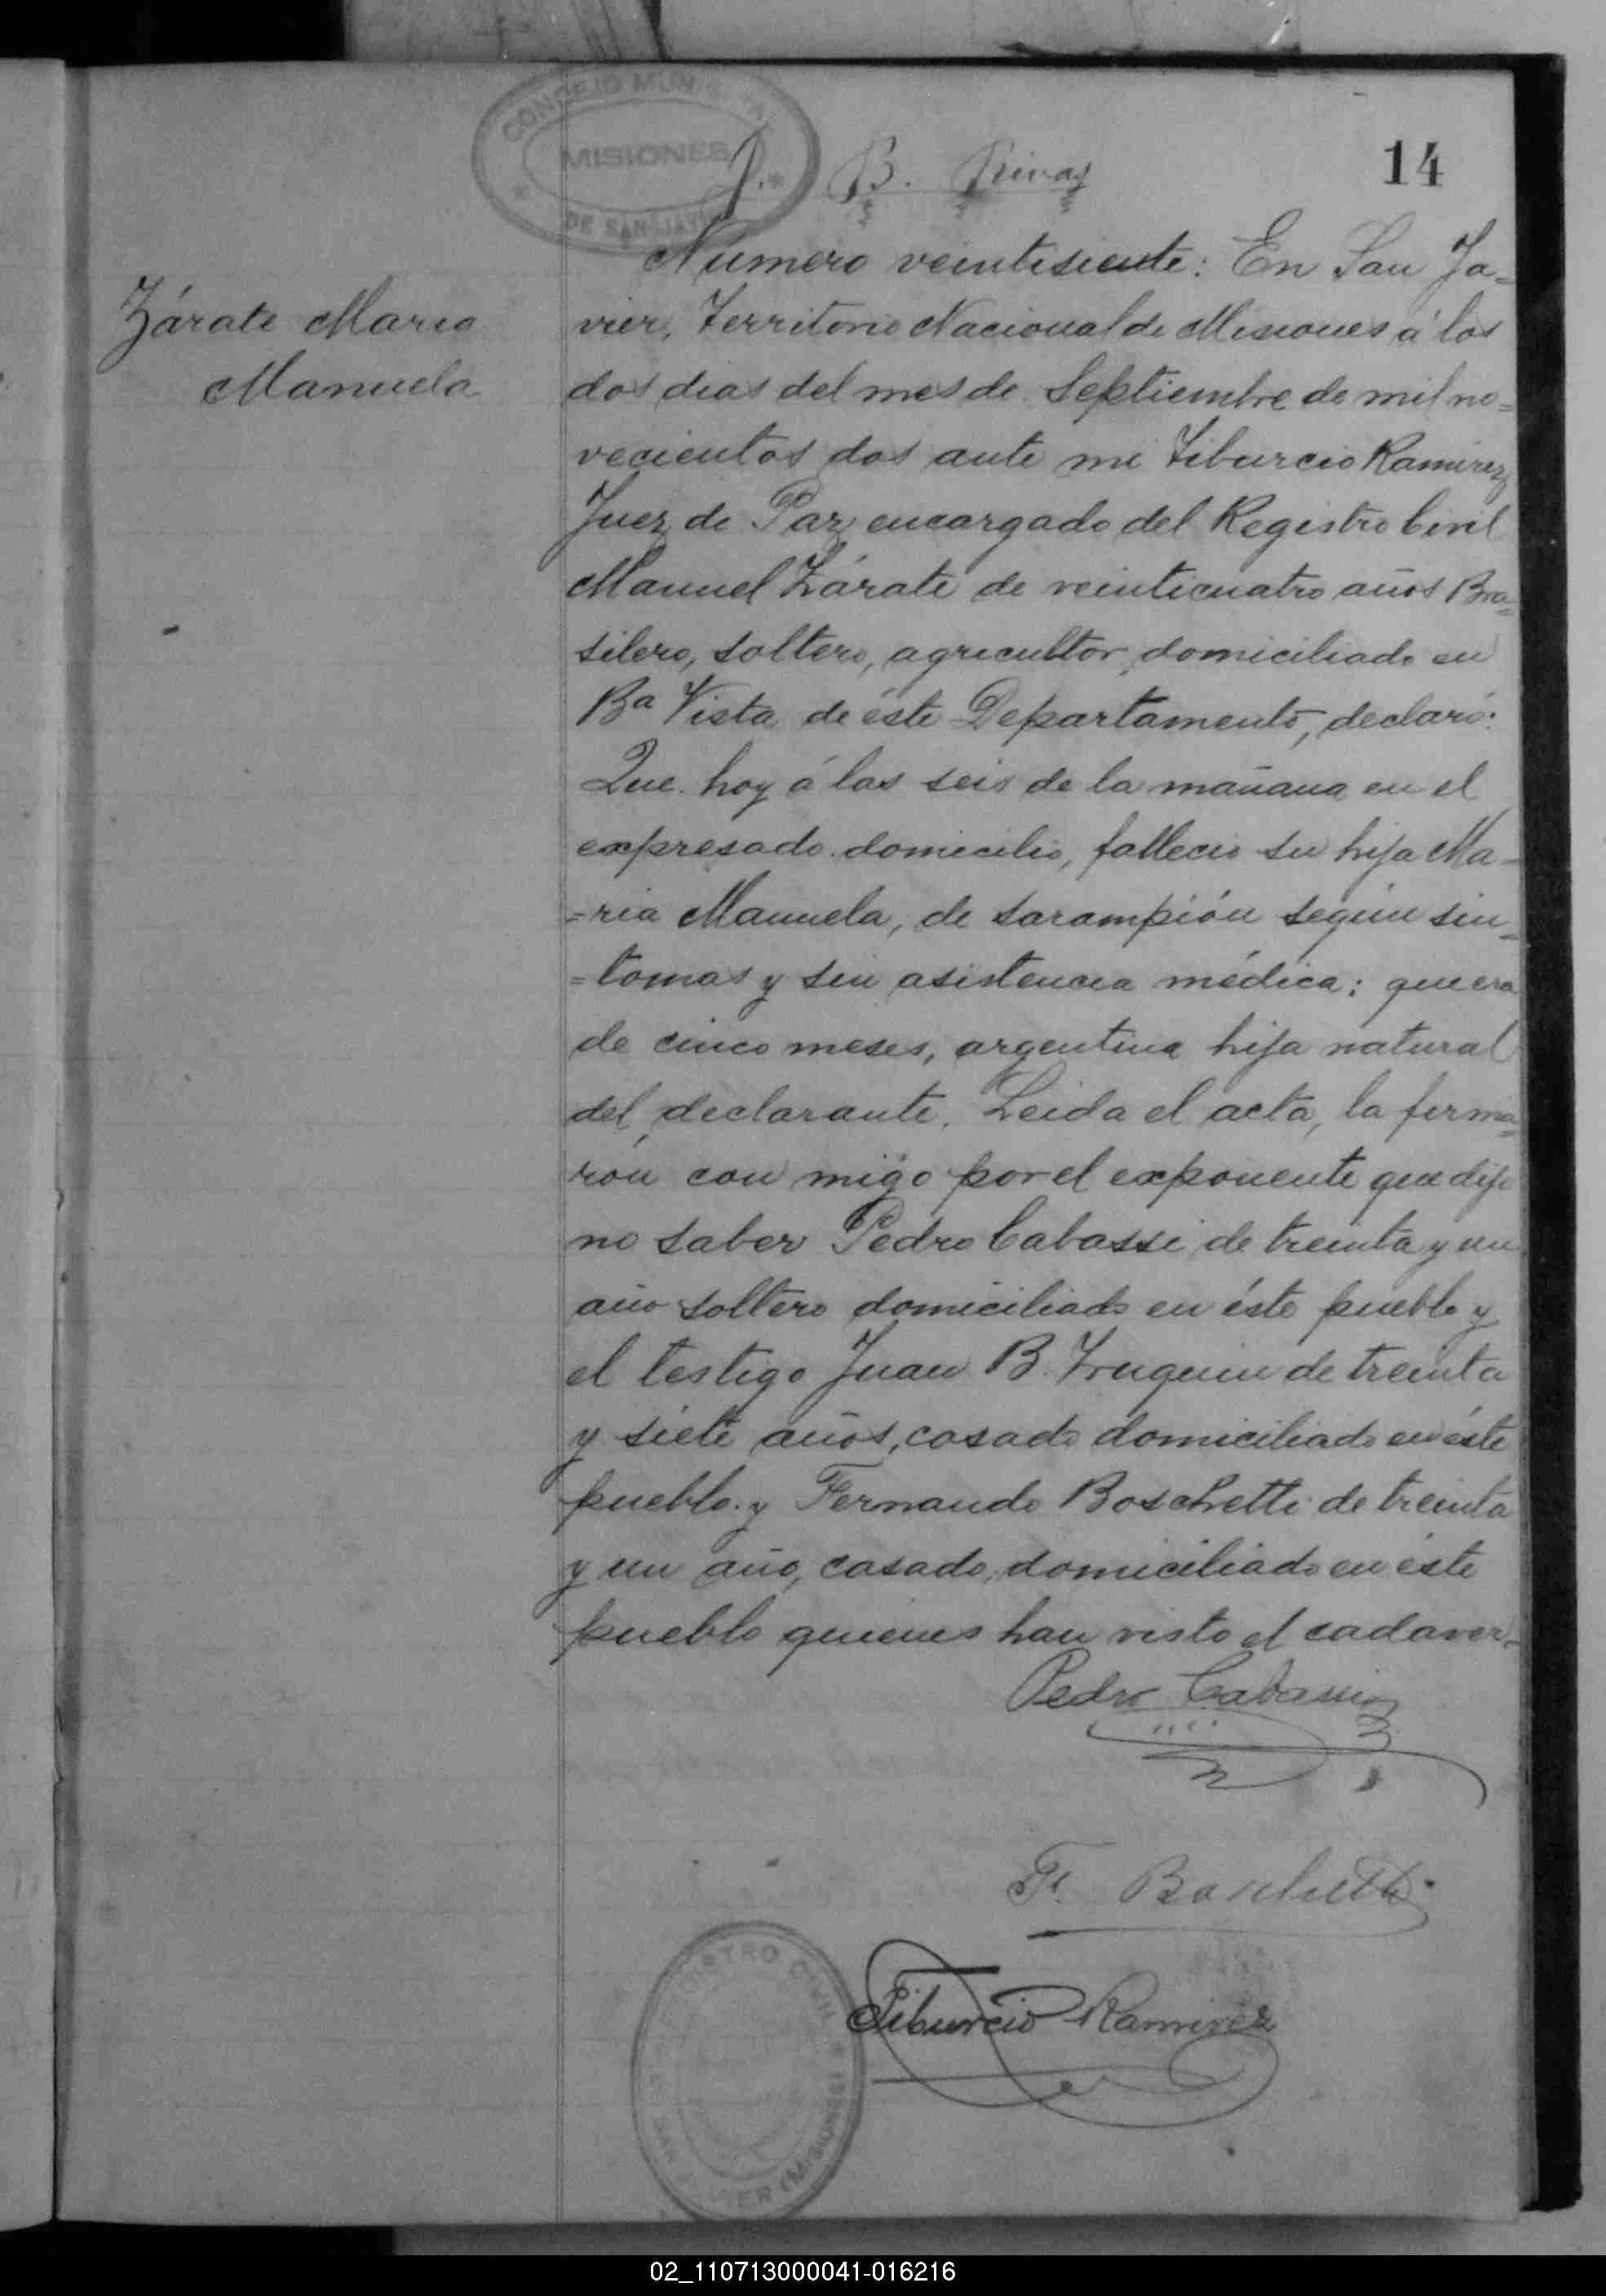 CONSEJO MUNICIPAL
MISIONES
DE SAN JAVIER
J. B. Rivas
14
Zárate Maria
Manuela
Número veintisiente: En San Ja-
vier, Territorio Nacional de Misiones á los
dos dias del mes de Septiembre de mil no=
vecientos dos ante mi Tiburcio Ramirez
Juez de Paz encargado del Registro Civil
Manuel Zárate de veinticuatro años Bra=
silero, soltero, agricultor, domiciliado en
Bª Vista de éste Departamento, declaró:
Que hoy á las seis de la mañana en el
expresado domicilio, fallecio su hija Ma-
=ria Manuela, de sarampión según sin-
=tomas y sin asistencia médica; que era
de cinco meses, argentina hija natural
del declarante. Leida el acta, la firma=
rón con migo por el exponente que dijo
no saber Pedro Cabassi de treinta y un
año soltero domiciliado en éste pueblo y
el testigo Juan B. Truquin de treinta
y siete años, casado domiciliado en éste
pueblo y Fernando Boschetti de treinta
y un año, casado, domiciliado en éste
pueblo quienes han visto el cadaver.-
Pedro Cabassi
F. Boschetti
Tiburcio Ramirez
REGISTRO CIVIL
DE SAN JAVIER (MISIONES)
02_110713000041-016216